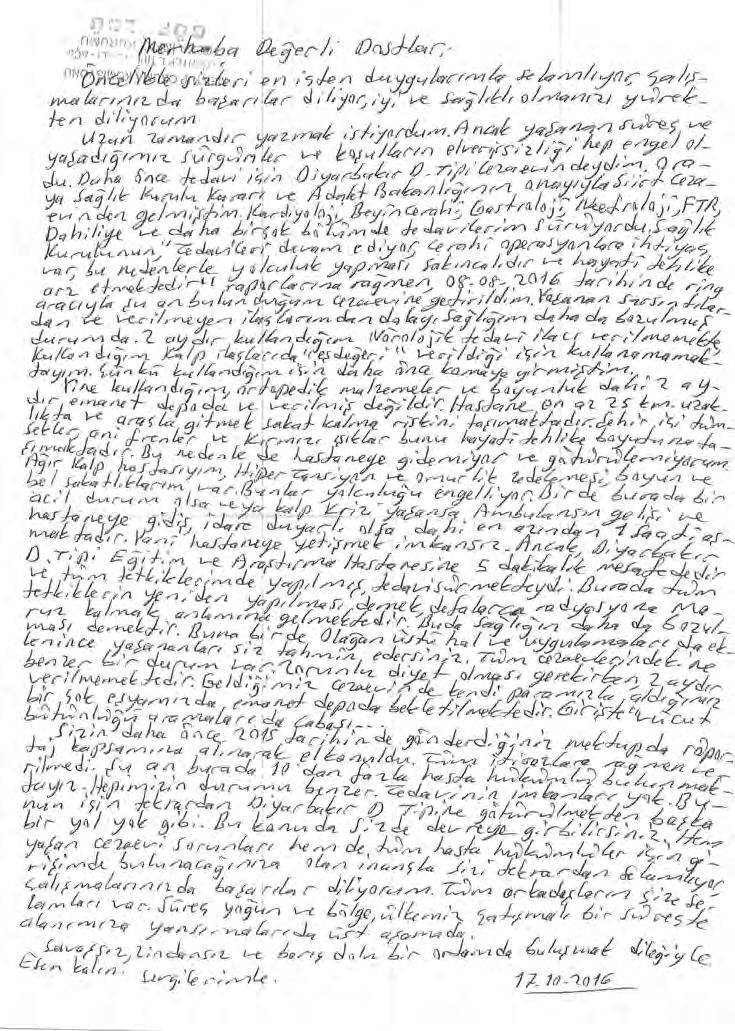 Merhaba Değerli Dostlar;
Öncelikle sizleri en içten duygularımla selamlıyor, çalış-
malarınızda başarılar diliyor, iyi ve sağlıklı olmanızı yürek-
ten diliyorum
Uzun zamandır yazmak istiyordum. Ancak yaşanan süreç ve
yaşadığımız sürgünler ve koşulların elverişsizliği hep engel ol-
du. Daha önce tedavi için Diyarbakır D-Tipi Cezaevindeydim. Ora-
ya Sağlık Kurulu Kararı ve Adalet Bakanlığının onayıyla Siirt Ceza-
evinden gelmiştim. Kardiyoloji, Beyin Cerahi, Gastroloji, Neefroloji, FTR,
Dahiliye ve daha birçok bölümde tedavilerim sürüyordu. Sağlık
Kurulunun, "Tedavileri devam ediyor, cerahi operasyonlara ihtiyaç
var, bu nedenlerle yolculuk yapması sakıncalıdır ve hayati tehlike
arz etmektedir" raporlarına rağmen, 08-08-2016 tarihinde ring
aracıyla şu an bulunduğum cezaevine getirildim. Yaşanan sarsıntılar-
dan ve verilmeyen ilaçlarımdan dolayı sağlığım daha da bozulmuş
durumda. 2 aydır kullandığım Norolojik tedavi ilacı verilmemekte,
kullandığım kalp ilaçlarıda "eşdeğeri" verildiği için kullanamamak-
tayım. Çünkü kullandığım için daha önce komaya girmiştim.
Yine kullandığım, ortopedik malzemeler ve boyunluk dahi 2 ay-
dır emanet depoda ve verilmiş değildir. Hastane en az 25 km. uzak-
lıkta ve araçla gitmek sakat kalma riskini taşımaktadır. Şehir içi tüm-
sekler ani frenler ve kırmızı ışıklar bunu hayati tehlike boyutuna ta-
şımaktadır. Bu nedenle de hastaneye gidemiyor ve götürülemiyorum.
Ağır kalp hastasıyım, Hiper Tansiyon ve omurlik zedelemesi, boyun ve
bel sakatlıklarım var. Bunlar yolculuğu engelliyor. Bir de burada bir
acil durum olsa veya kalp krizi yaşansa, Ambulansın gelişi ve
hastaneye gidiş, idare duyarlı olsa dahi en azından 1 saati aş-
maktadır. Yani hastaneye yetişmek imkansız. Ancak, Diyarbakır
D. Tipi Eğitim ve Araştırma Hastanesine 5 dakikalık mesafededir
ve tüm tetkiklerimde yapılmış, tedavi sürmekteydi. Burada tüm
tetkiklerin yeniden yapılması demek defalarca radyosyona ma-
ruz kalmak anlamına gelmektedir. Buda sağlığın daha da bozul-
ması demektir. Buna bir de Olağan üstü hal ve uygulamaları da ek-
lenince yaşananları siz tahmin edersiniz. Tüm cezaevlerindekine
benzer bir durum var. Zorunlu diyet olması gerekirken 2 aydır
verilmemektedir. Geldiğimiz cezaevinde kendi paramızla aldığımız
bir çok eşyamızda, emanet depoda bekletilmektedir. Girişte "vücut
bütünlüğü aramaları da cabası....
Sizin daha önce 2015 tarihinde gönderdiğiniz mektupda ropor-
taj kapsamına alınarak elkonuldu. Tüm itirazlara rağmen ve-
rilmedi. Şu an burada 10'dan fazla hasta hükümlü bulunmak-
tayız. Hepimizin durumu benzer. Tedavinin imkanları yok. Bu-
nun için tekrardan Diyarbakır D Tipine götürülmekten başka
bir yol yok gibi. Bu konuda sizde devreye girebilirsiniz. Hem
yaşan cezaevi sorunları hem de, tüm hasta hükümlüler için gi-
rişimde bulunacağınıza olan inançla sizi tekrardan selamlıyor
çalışmalarınızda başarılar diliyorum. Tüm arkadaşların size se-
lamları var. Süreç yoğun ve bölge, ülkemiz çatışmalı bir süreçte
alanımıza yansımalarıda üst aşamada.
Savaşsız, zindansız ve barış dolu bir ortamda buluşmak dileğiyle
Esen kalın. Sevgilerimle.
17-10-2016